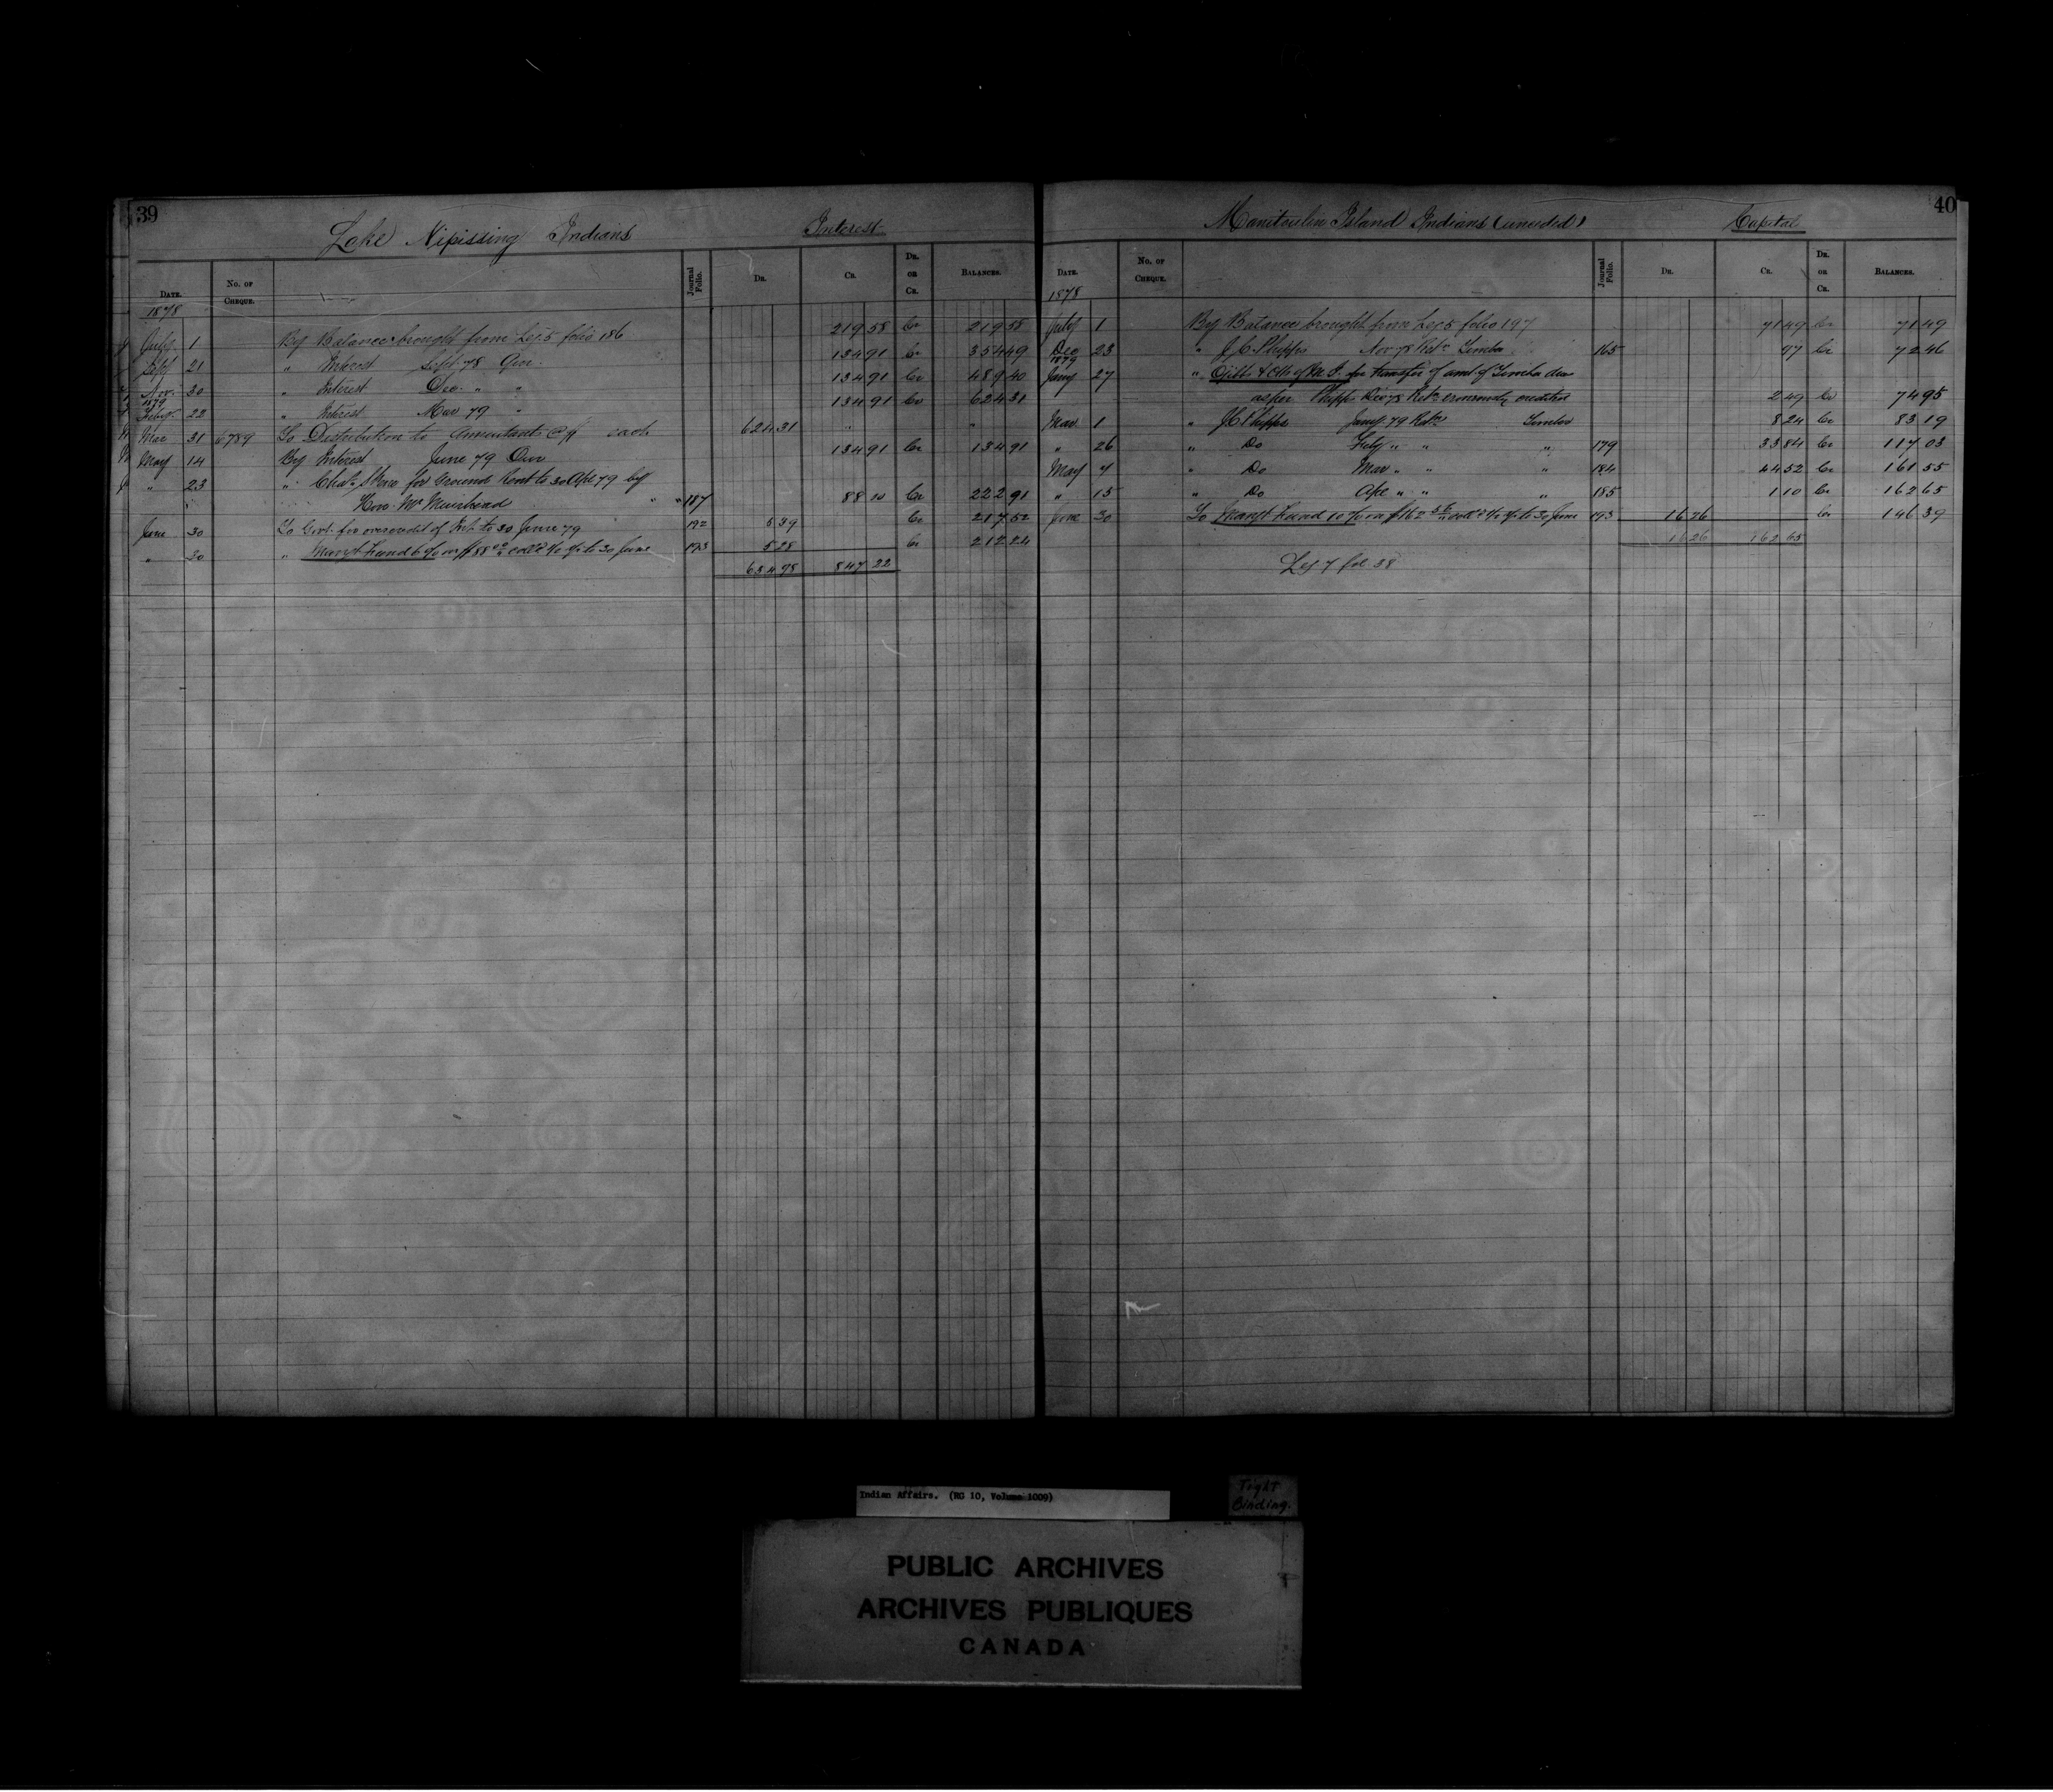 39
Lake Nipissing Indians Interest
DATE. No. OF CHEQUE. Journal Folio. DR. CR. DR. OR CR. BALANCES.
1878
July 1 By Balance brought from Leg. 5 folio 186 219 58 Cr 219 58
Sept 21 " Interest Sept 78 Qur. 134 91 Cr 354 49
Nov. 30 " Interest Dec. " " 134 91 Cr 489 40
1879
Feby. 22 " Interest Mar 79 " 134 91 Cr 624 31
Mar 31 6789 To Distribution to Annuitants @ $ each 624 31 " "
May 14 By Interest June 79 Qur 134 91 Cr 134 91
" 23 " Chas. for Ground Rent to 30 Apl 79 by
Hon. Mr Muirhead " " 187 88 00 Cr 222 91
June 30 To Govt. for overcredit of Int. to 30 June 79 192 5 39 Cr 217 52
" 30 " Mangt Fund 6 % on $88 00 coll'd to 30 June 193 5 28 Cr 212 24
634 98 847 22
40
Manitoulin Island Indians (unceded) Capital
DATE. No. OF CHEQUE. Journal Folio. DR. CR. DR. OR CR. BALANCES.
1878
July 1 By Balance brought from Leg 5 folio 197 71 49 Cr 71 49
Dec 23 " J.C. Phipps Nov 78 Ret. Timber 165 97 Cr 72 46
1879
Jany 27 " Ojibb & Ott. of M. I. for transfer of amt. of Timber dues
as per Phipps Dec 78 Ret. erroneously credited 2 49 Cr 74 95
Mar 1 " J.C. Phipps Jany 79 Ret. Timber 8 24 Cr 83 19
" 26 " Do Feby " " " 179 33 84 Cr 117 03
May 7 " Do Mar " " " 184 44 52 Cr 161 55
" 15 " Do Apl " " " 185 1 10 Cr 162 65
June 30 To Mangt Fund 10 % on $162 coll'd to 30 June 193 16 26 Cr 146 39
16 26 162 65
Leg 7 fol 38
Indian Affairs. (RG 10, Volume 1009)
Tight
Binding.
PUBLIC ARCHIVES
ARCHIVES PUBLIQUES
CANADA